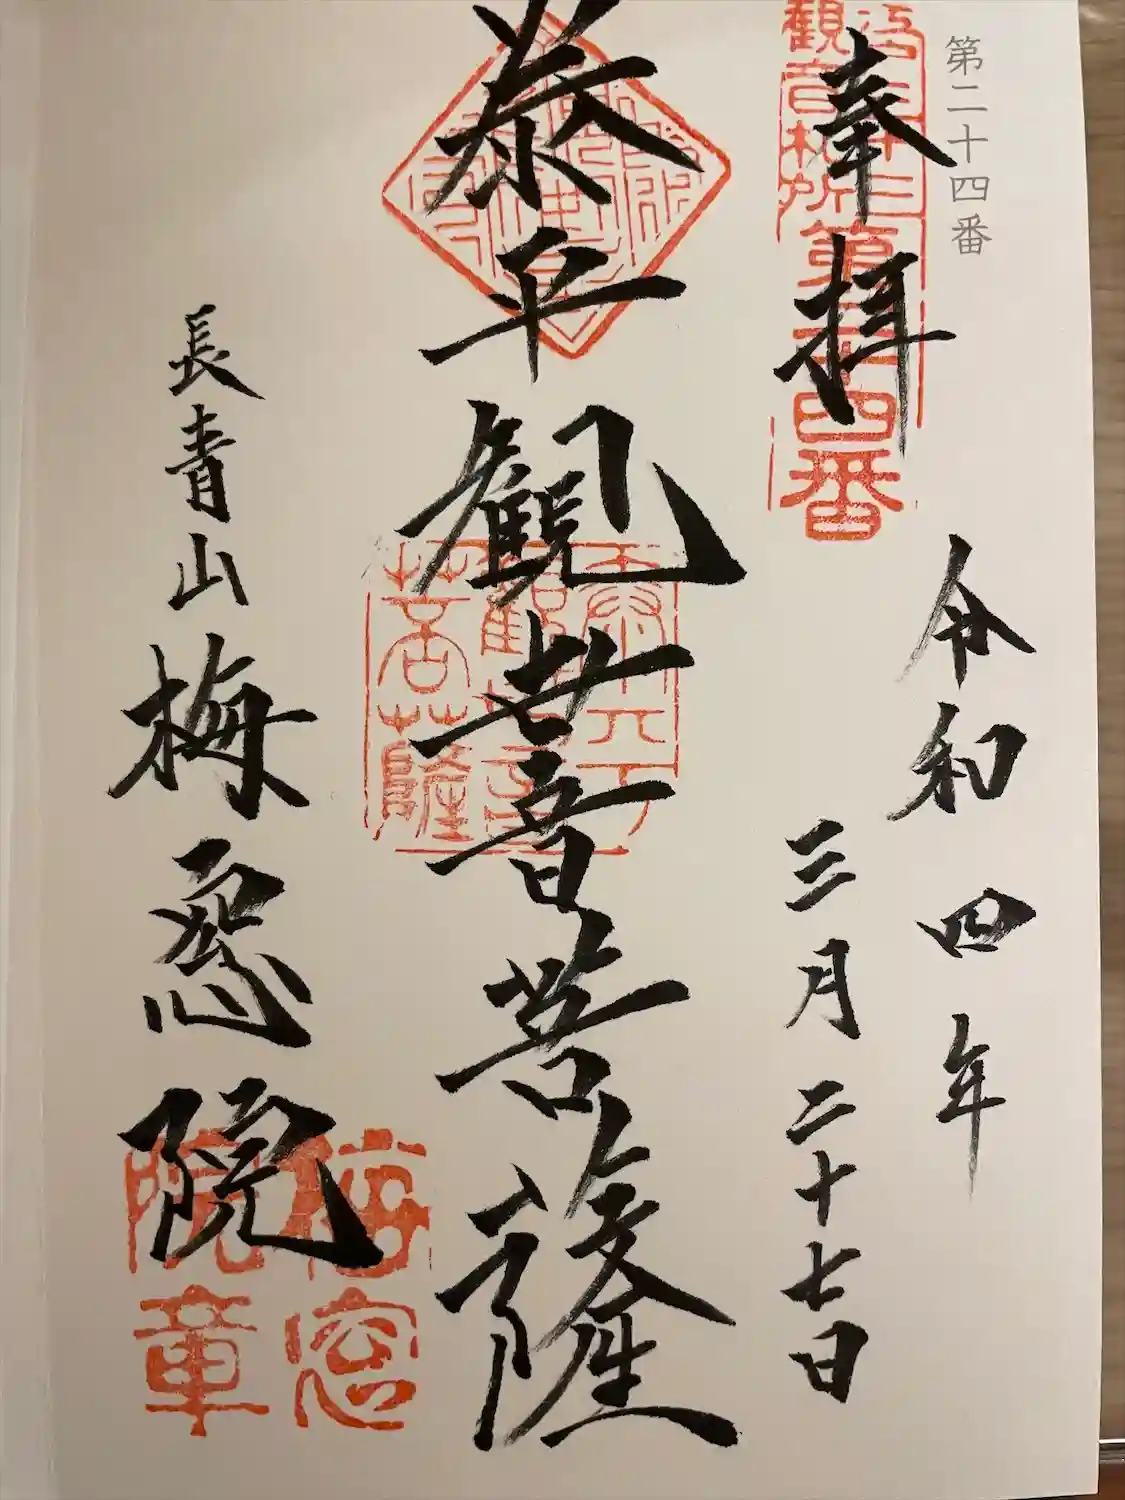 第二十四番
奉拝
令和四年
三月二十七日
泰平観世音菩薩
長青山
梅窓院
観音札所第二十四番
泰平観世音菩薩
梅窓院章